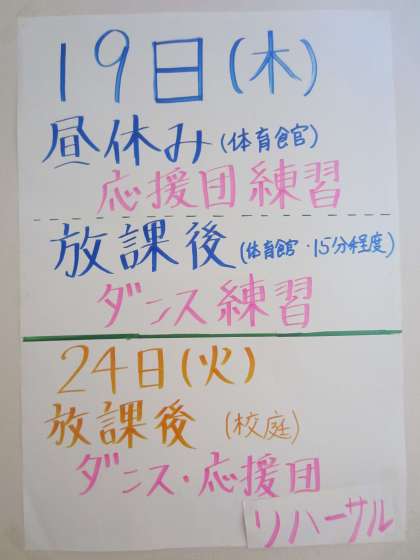 19日(木)
昼休み(体育館)
応援団練習
放課後(体育館・15分程度)
ダンス練習
24日(火)
放課後(校庭)
ダンス・応援団
リハーサル